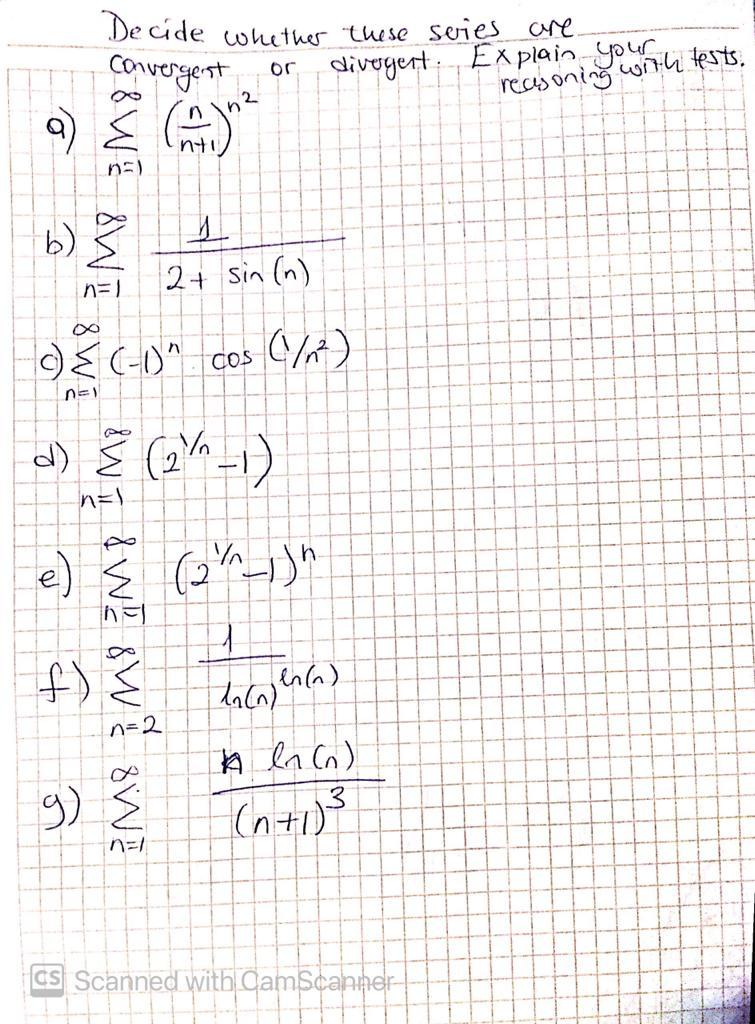 Decide whether these series are
convergent or divergent. Explain your
reasoning with tests.
a) ∞ ∑ n=1 (n/(n+1))^n^2
b) ∞ ∑ n=1 1/(2+ sin(n))
c) ∞ ∑ n=1 (-1)^n cos(1/n²)
d) ∞ ∑ n=1 (2^1/n -1)
e) ∞ ∑ n=1 (2^1/n -1)^n
f) ∞ ∑ n=2 1/ln(n)^ln(n)
g) ∞ ∑ n=1 n ln(n)/(n+1)^3
CS Scanned with CamScanner